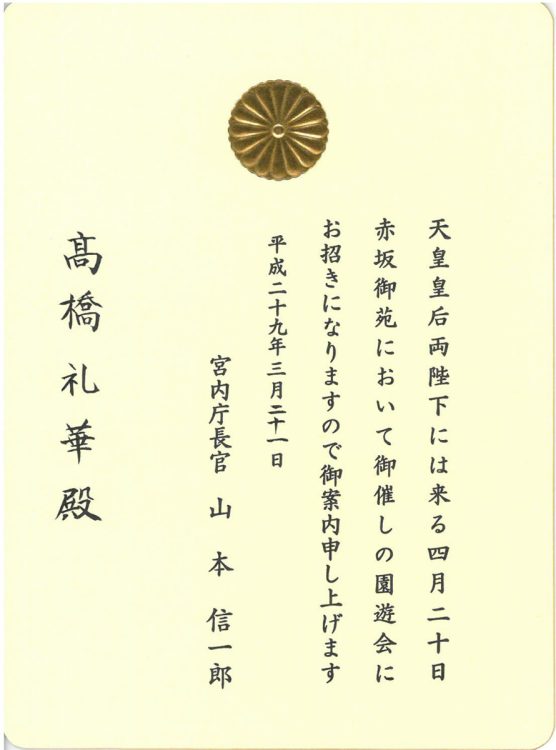 天皇皇后両陛下には来る四月二十日
赤坂御苑において御催しの園遊会に
お招きになりますので御案内申し上げます
平成二十九年三月二十一日
宮内庁長官　山本　信一郎
髙橋　礼華殿